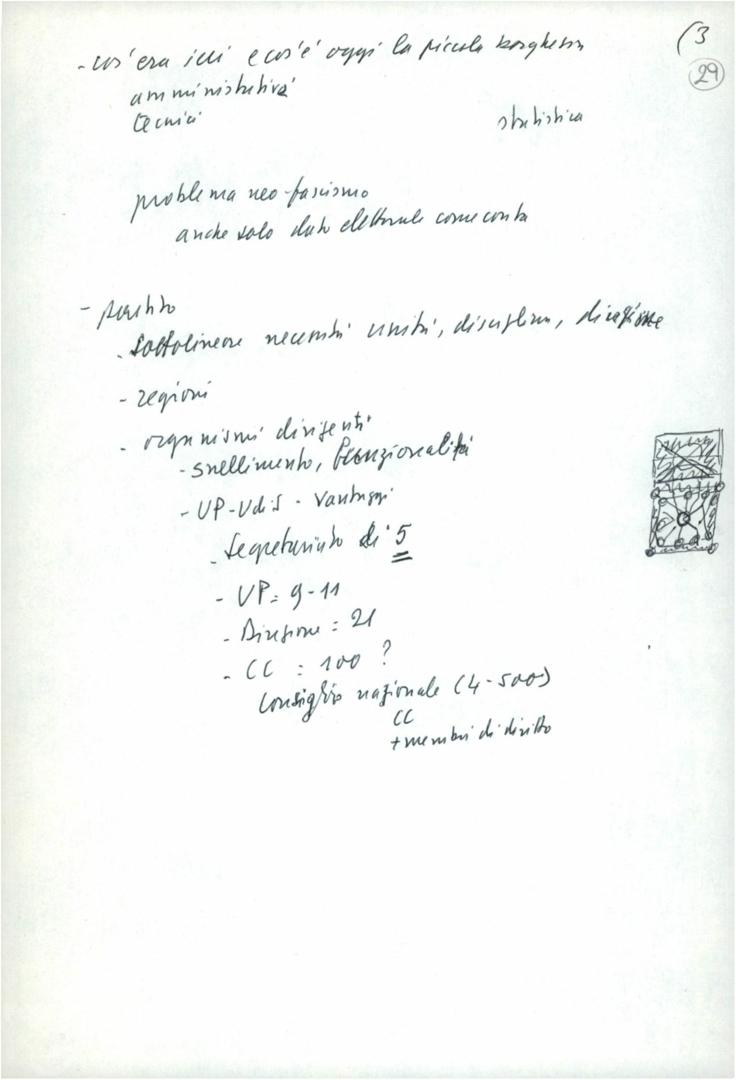 (3
29
- cos'era ieri e cos'è oggi la piccola borghesia
amministrativi
tecnici statistica
problema neo-fascismo
anche solo dato elettorale come conta
- partito
. Sottolineare necessità unità, disciplina, direzione
- regioni
- organismi dirigenti
- snellimento, funzionalità
- UP - Udis - vantaggi
- Segretariato di 5
- UP = 9-11
- Direzione = 21
- CC = 100 ?
Consiglio nazionale (4-500)
CC
+ membri di diritto